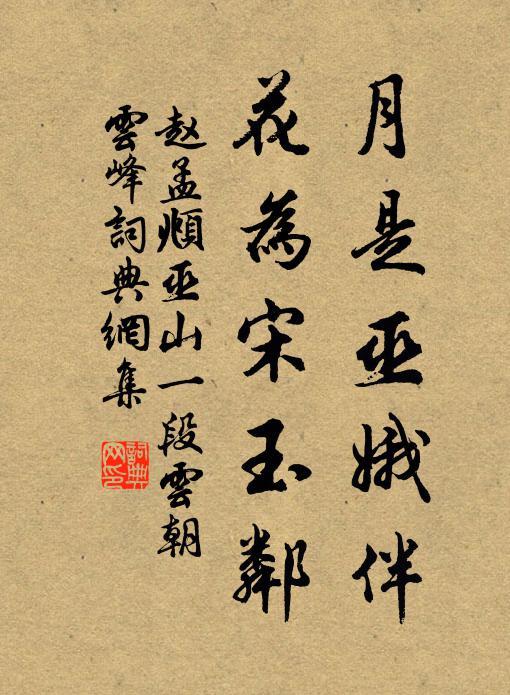 月是巫娥伴
花為宋玉鄰
赵孟頫巫山一段雲朝
雲峰詞典網集
詞典網印